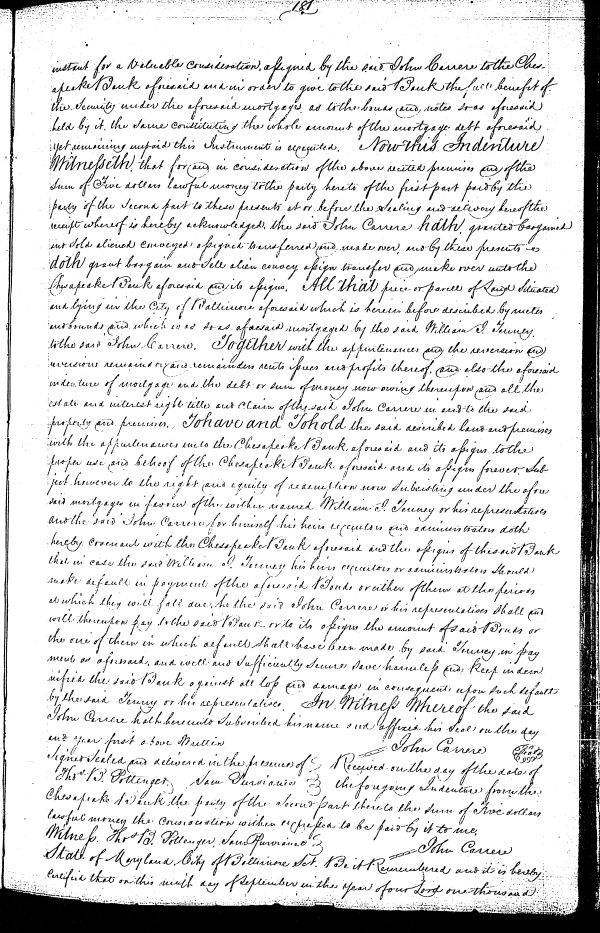 181
instant for a valuable consideration, assigned by the said John Carrere to the Ches
apeake Bank aforesaid and in order to give to the said Bank the full benefit of
the Security under the aforesaid mortgage, as to the bonds and notes so as aforesaid
held by it, the same constituting the whole amount of the mortgage debt aforesaid
yet remaining unpaid this Instrument is executed. Now this Indenture
Witnesseth, that for and in consideration of the above recited premises and of the
sum of Five dollars lawful money to the party hereto of the first part paid by the
party of the second part to these presents at or before the sealing and delivery hereof the
receipt whereof is hereby acknowledged, the said John Carrere hath, granted bargained
and sold aliened conveyed assigned transferred and made over, and by these presents
doth grant bargain and sell alien convey assign transfer and make over unto the
Chesapeake Bank aforesaid and its assigns. All that piece or parcell of Land Situated
and lying in the City of Baltimore aforesaid which is herein before described by metes
and bounds and which was so as aforesaid mortgaged by the said William I. Tenney
to the said John Carrere. Together with the appurtenances and the reversion and
reversions remainder and remainders rents issues and profits thereof, and also the aforesaid
indenture of mortgage and the debt or sum of money now owing thereupon and all the
estate and interest right title and claim of the said John Carrere in and to the said
property and premises. To have and To hold the said described land and premises
with the appurtenances unto the Chesapeake Bank aforesaid and its assigns to the
proper use and behoof of the Chesapeake Bank aforesaid and its assigns forever. Sub
ject however to the right and equity of redemption now subsisting under the afore
said mortgages in favour of the within named William I. Tenney or his representatives
and the said John Carrere for himself his heirs executors and administrators doth
hereby covenant with the Chesapeake Bank aforesaid and the assigns of the said Bank
that in case the said William I. Tenney his heirs executors or administrators should
make default in payment of the aforesaid Bonds or either of them at the periods
at which they will fall due, he the said John Carrere or his representatives shall and
will thereupon pay to the said Bank or to its assigns the amount of said Bonds or
the one of them in which default shall have been made by said Tenney in pay
ment as aforesaid, and well and sufficiently secure save harmless and keep indem
nified the said Bank against all loss and damage in consequent upon such default
by the said Tenney or his representatives. In Witness Whereof the said
John Carrere hath hereunto subscribed his name and affixed his seal on the day
and year first above Written John Carrere
Signed Sealed and delivered in the presence of Received on the day of the date of
Thos. B. Pottenger, Sam Purviance the foregoing Indenture from the
Chesapeake Bank the party of the second part thereto the sum of Five dollars
lawful money the consideration within expressed to be paid by it to me.
Witness. Thos B. Pottenger, Sam Purviance John Carrere
State of Maryland, City of Baltimore Sct. Be it Remembered and it is hereby
certified that on this ninth day of September in the year of our Lord one thousand